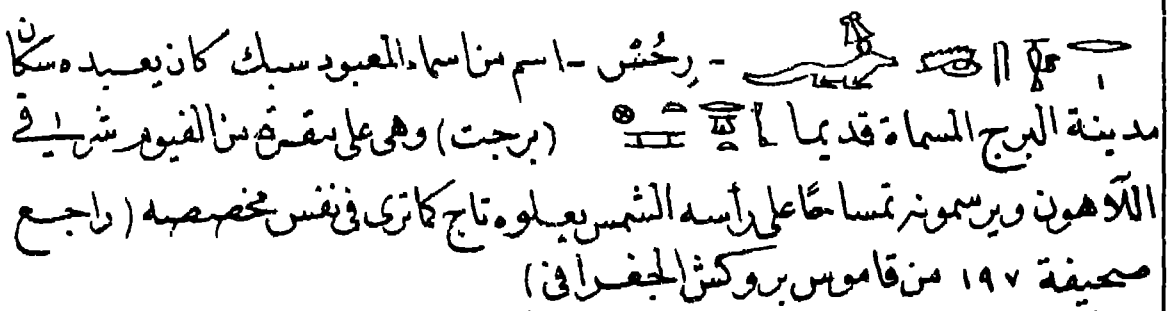 - رِحُسْ - اسم من اسماء المعبود سبك كان يعبده سكان
مدينة البرج المسماة قديما (برجت) وهى على مقربة من الفيوم شرقى
اللاهون ويرسمونه تمساحًا على رأسه الشمس يعلوه تاج كما ترى فى نفس مخصصه (راجع
صحيفة ١٩٧ من قاموس بروكش الجغرافى)